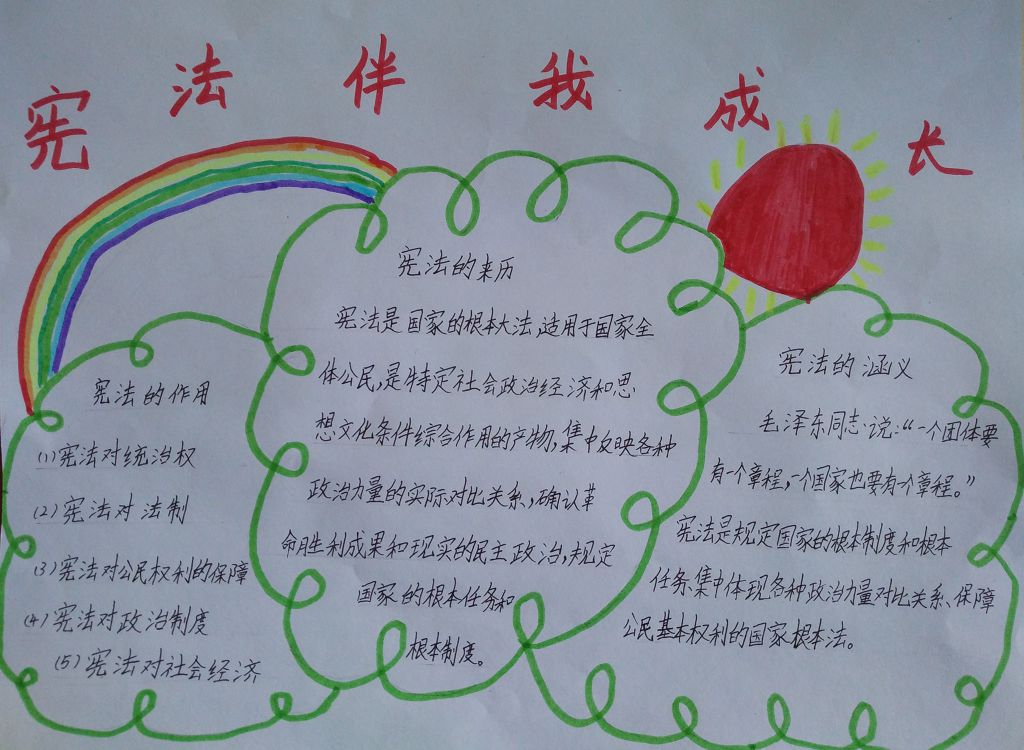 宪法伴我成长
宪法的作用
(1)宪法对统治权
(2)宪法对法制
(3)宪法对公民权利的保障
(4)宪法对政治制度
(5)宪法对社会经济
宪法的来历
宪法是国家的根本大法,适用于国家全
体公民,是特定社会政治经济和思
想文化条件综合作用的产物,集中反映各种
政治力量的实际对比关系,确认革
命胜利成果和现实的民主政治,规定
国家的根本任务和
根本制度。
宪法的涵义
毛泽东同志说:“一个团体要
有一个章程,一个国家也要有个章程。”
宪法是规定国家的根本制度和根本
任务、集中体现各种政治力量对比关系、保障
公民基本权利的国家根本法。